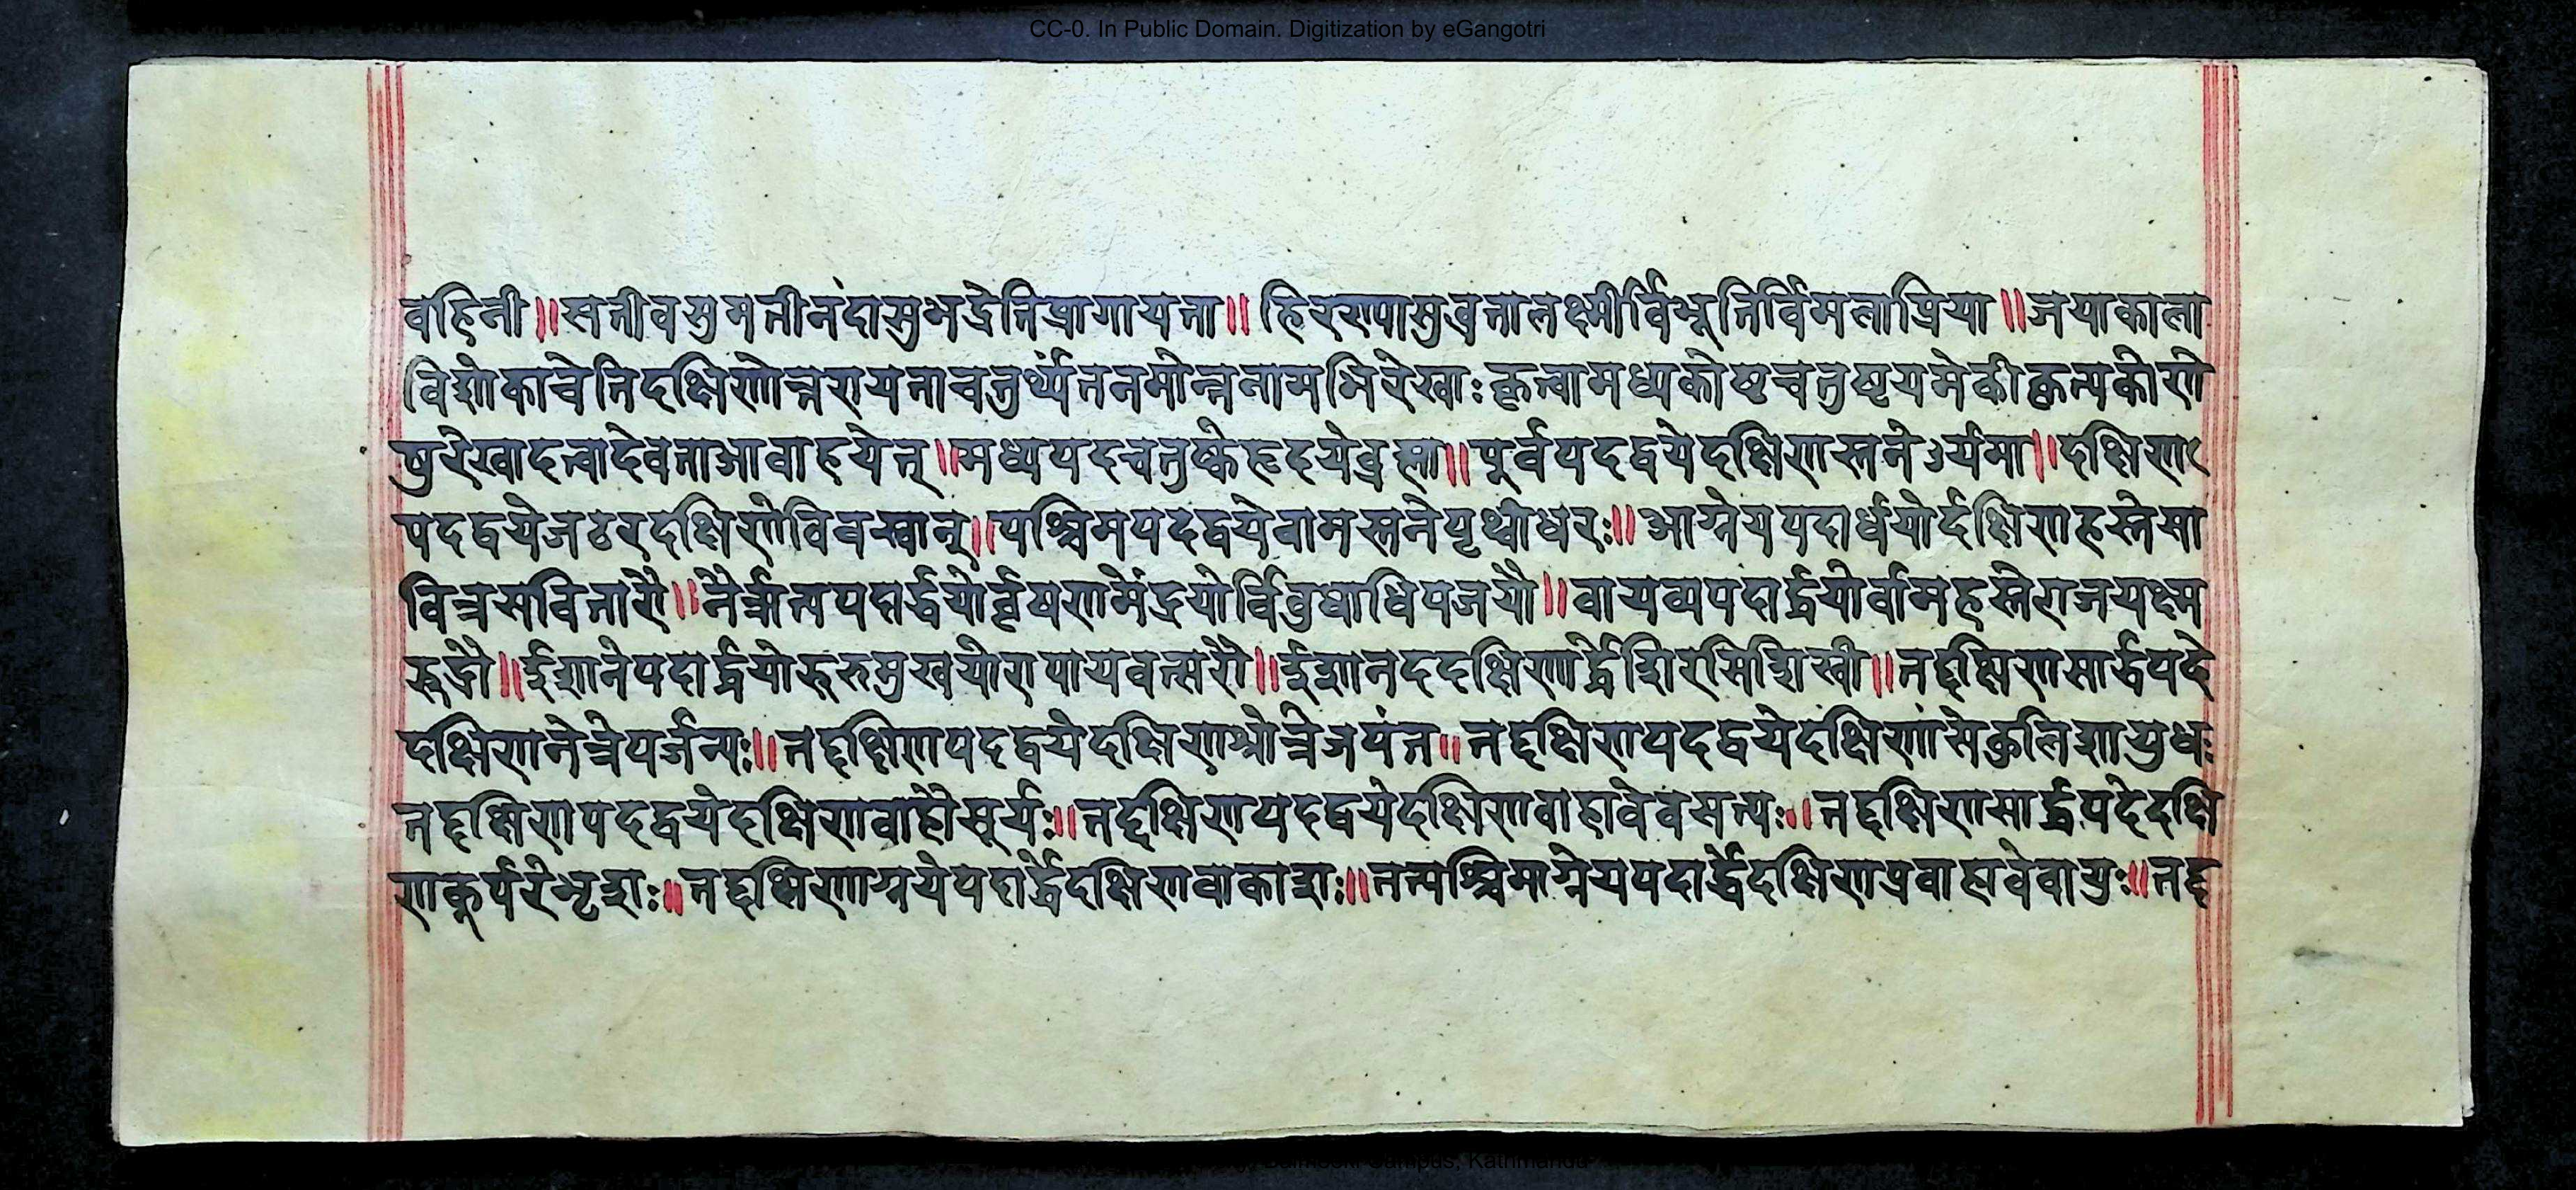 CC-0. In Public Domain. Digitization by eGangotri
वहिनी॥सतीवसुमतीनंदासुभद्रेतिप्रागायता॥हिरण्यासुव्रतालक्ष्मीर्विभूतिर्विमलाप्रिया॥जयाकाला
विशोकाचेतिदक्षिणोत्तरायताचतुर्थ्यंतनमोन्तनामभिरेखाःकृत्वामध्यकोष्टचतुष्टयमेकीकृत्यकोणे
षुरेखादत्वादेवताआवाहयेत्॥मध्यपदचतुष्केहृदयेब्रह्मा॥पूर्वपदद्वयेदक्षिणस्तनेऽर्यमा॥दक्षिण
पदद्वयेजठरदक्षिणेविवस्वान्॥पश्चिमपदद्वयेवामस्तनेपृथ्वीधरः॥आग्नेयपदार्धयोर्दक्षिणहस्तेसा
वित्रसवितारौ॥नैर्ऋत्यपदार्द्धयोर्वृषणमेंद्रयोर्विवुधाधिपजयौ॥वायव्यपदार्द्धयोर्वामहस्तेराजयक्ष्म
रुद्रौ॥ईशानेपदार्द्धयोरुरुमुखयोरापायवत्सरौ॥ईशानददक्षिणार्द्धेशिरसिशिखी॥तद्दक्षिणसार्द्धपदे
दक्षिणनेत्रेपर्जन्यः॥तद्दक्षिणपदद्वयेदक्षिणश्रोत्रेजयंत॥तद्दक्षिणपदद्वयेदक्षिणांसेकुलिशायुधः
तद्दक्षिणपदद्वयेदक्षिणवाहौसूर्यः॥तद्दक्षिणपदद्वयेदक्षिणवाहावेवसत्यः॥तद्दक्षिणसार्द्धपदेदक्षि
णकूर्परेभृशः॥तद्दक्षिणाग्नयेपदार्द्धेदक्षिणवाकाशः॥तत्पश्चिमाग्नेयपदार्द्धेदक्षिणप्रवाहावेवायुः॥तद्द
Campus, Kathmandu